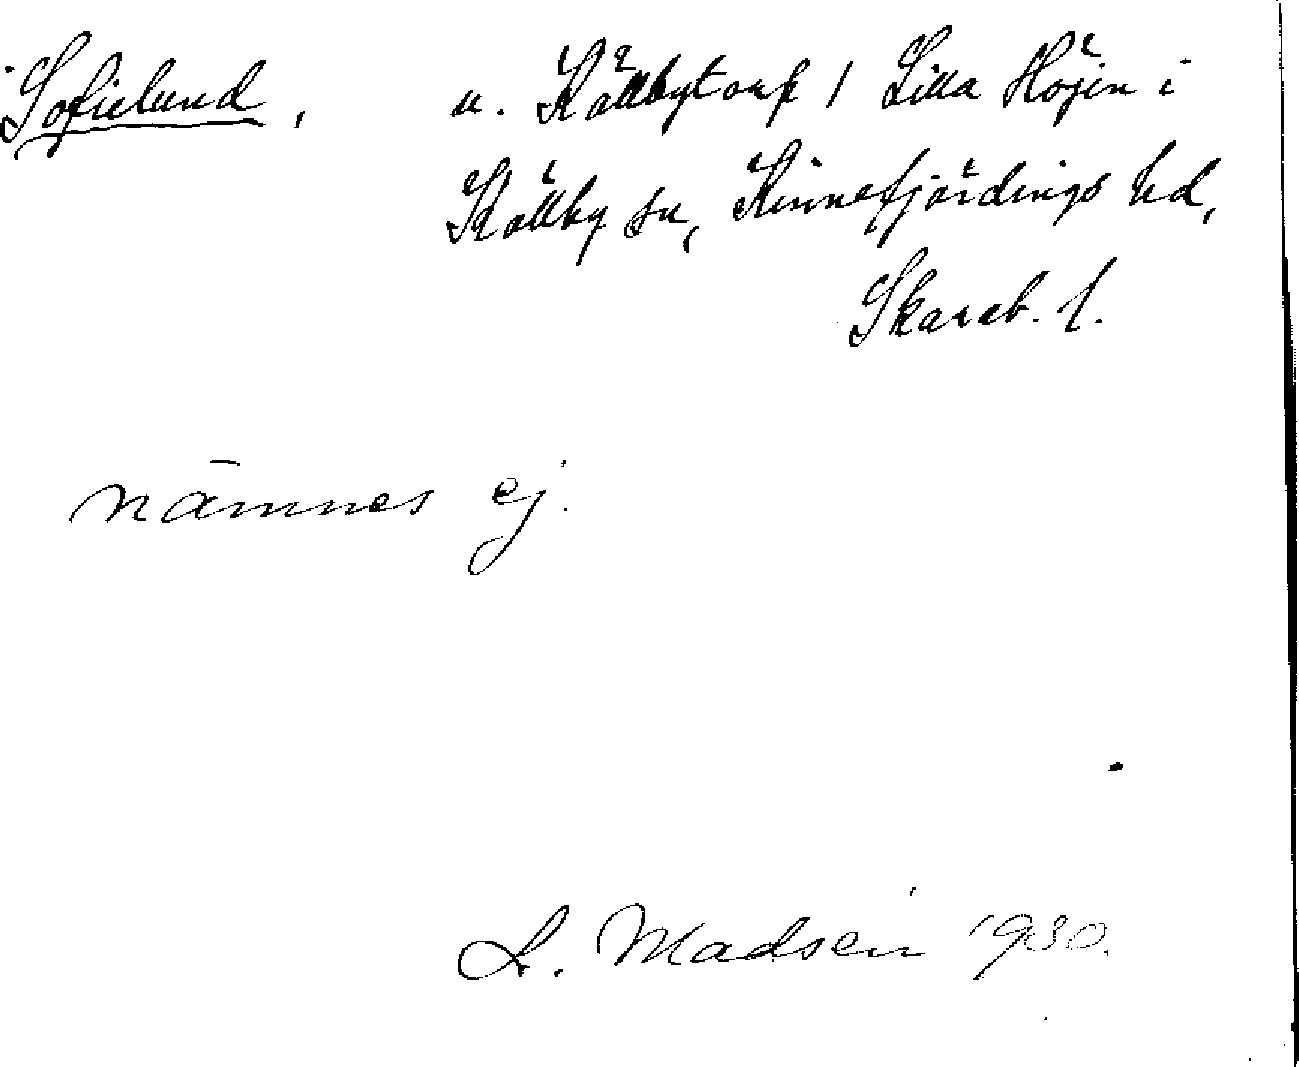 Sofielund, u. Källbytorp 1 Lilla Höjen i
Källby sn, Kinnefjärdings hd,
Skarab. l.
nämnes ej.
L. Madsén 1930.